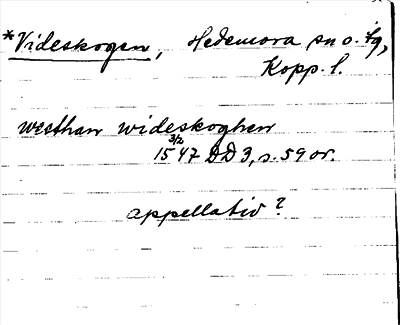 *Videskogen, Hedemora sn o. tg,
Kopp. l.
westhan wideskoghen
3/2
1547 DD 3, s. 59 or.
appellativ?